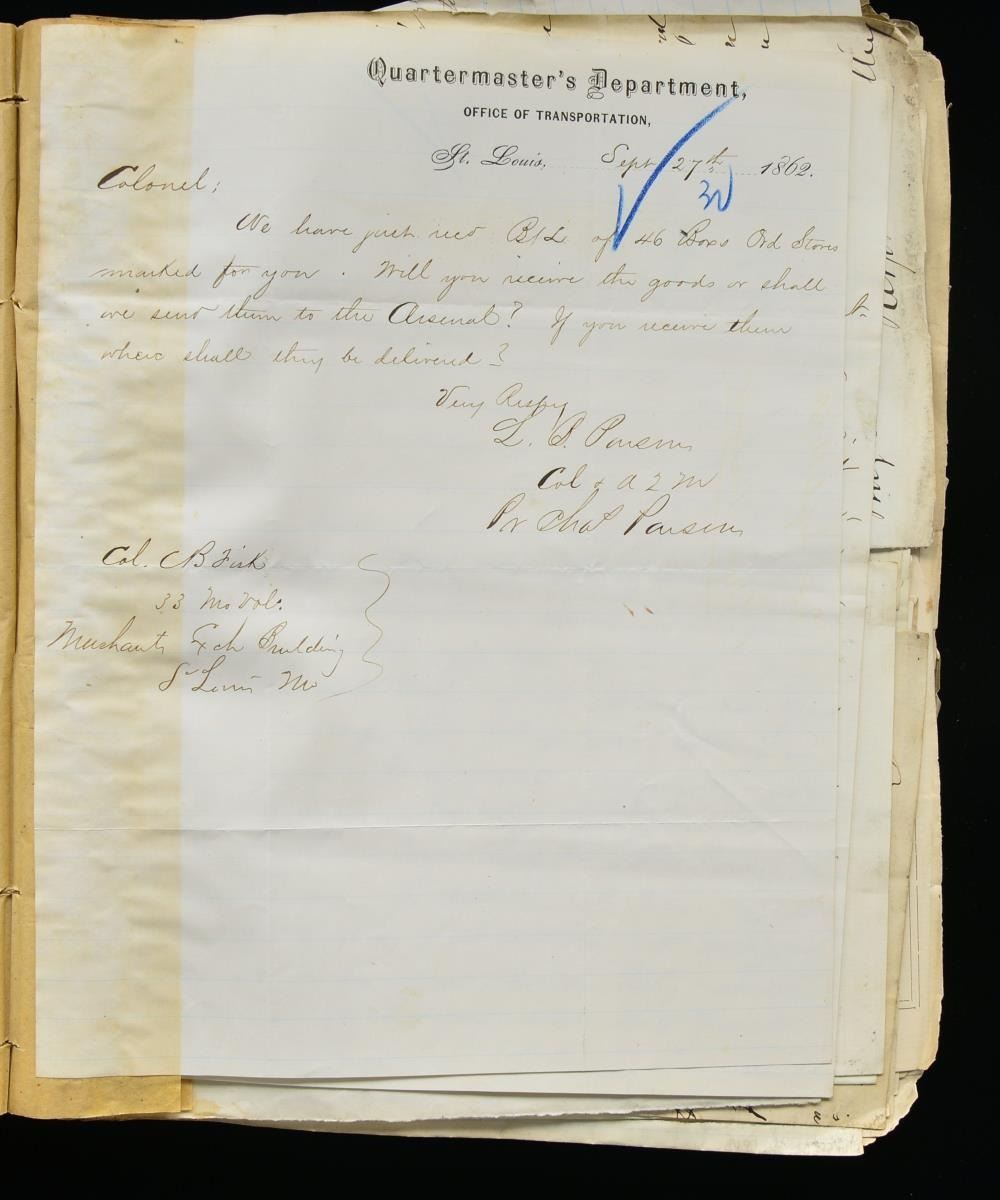 Quartermaster's Department,
OFFICE OF TRANSPORTATION,
St. Louis, Sept 27th 1862.
Colonel;
We have just recd B/L of 46 Boxs Ord Stores
marked for you. Will you receive the goods or shall
we send them to the Arsenal? If you receive them
where shall they be delivered?
Very Respy
L. B. Parsons
Col & A Q M
Pr Chas Parsons
Col. C B Fisk
33 Mo Vol.
Merchants Exch Building
St Louis Mo